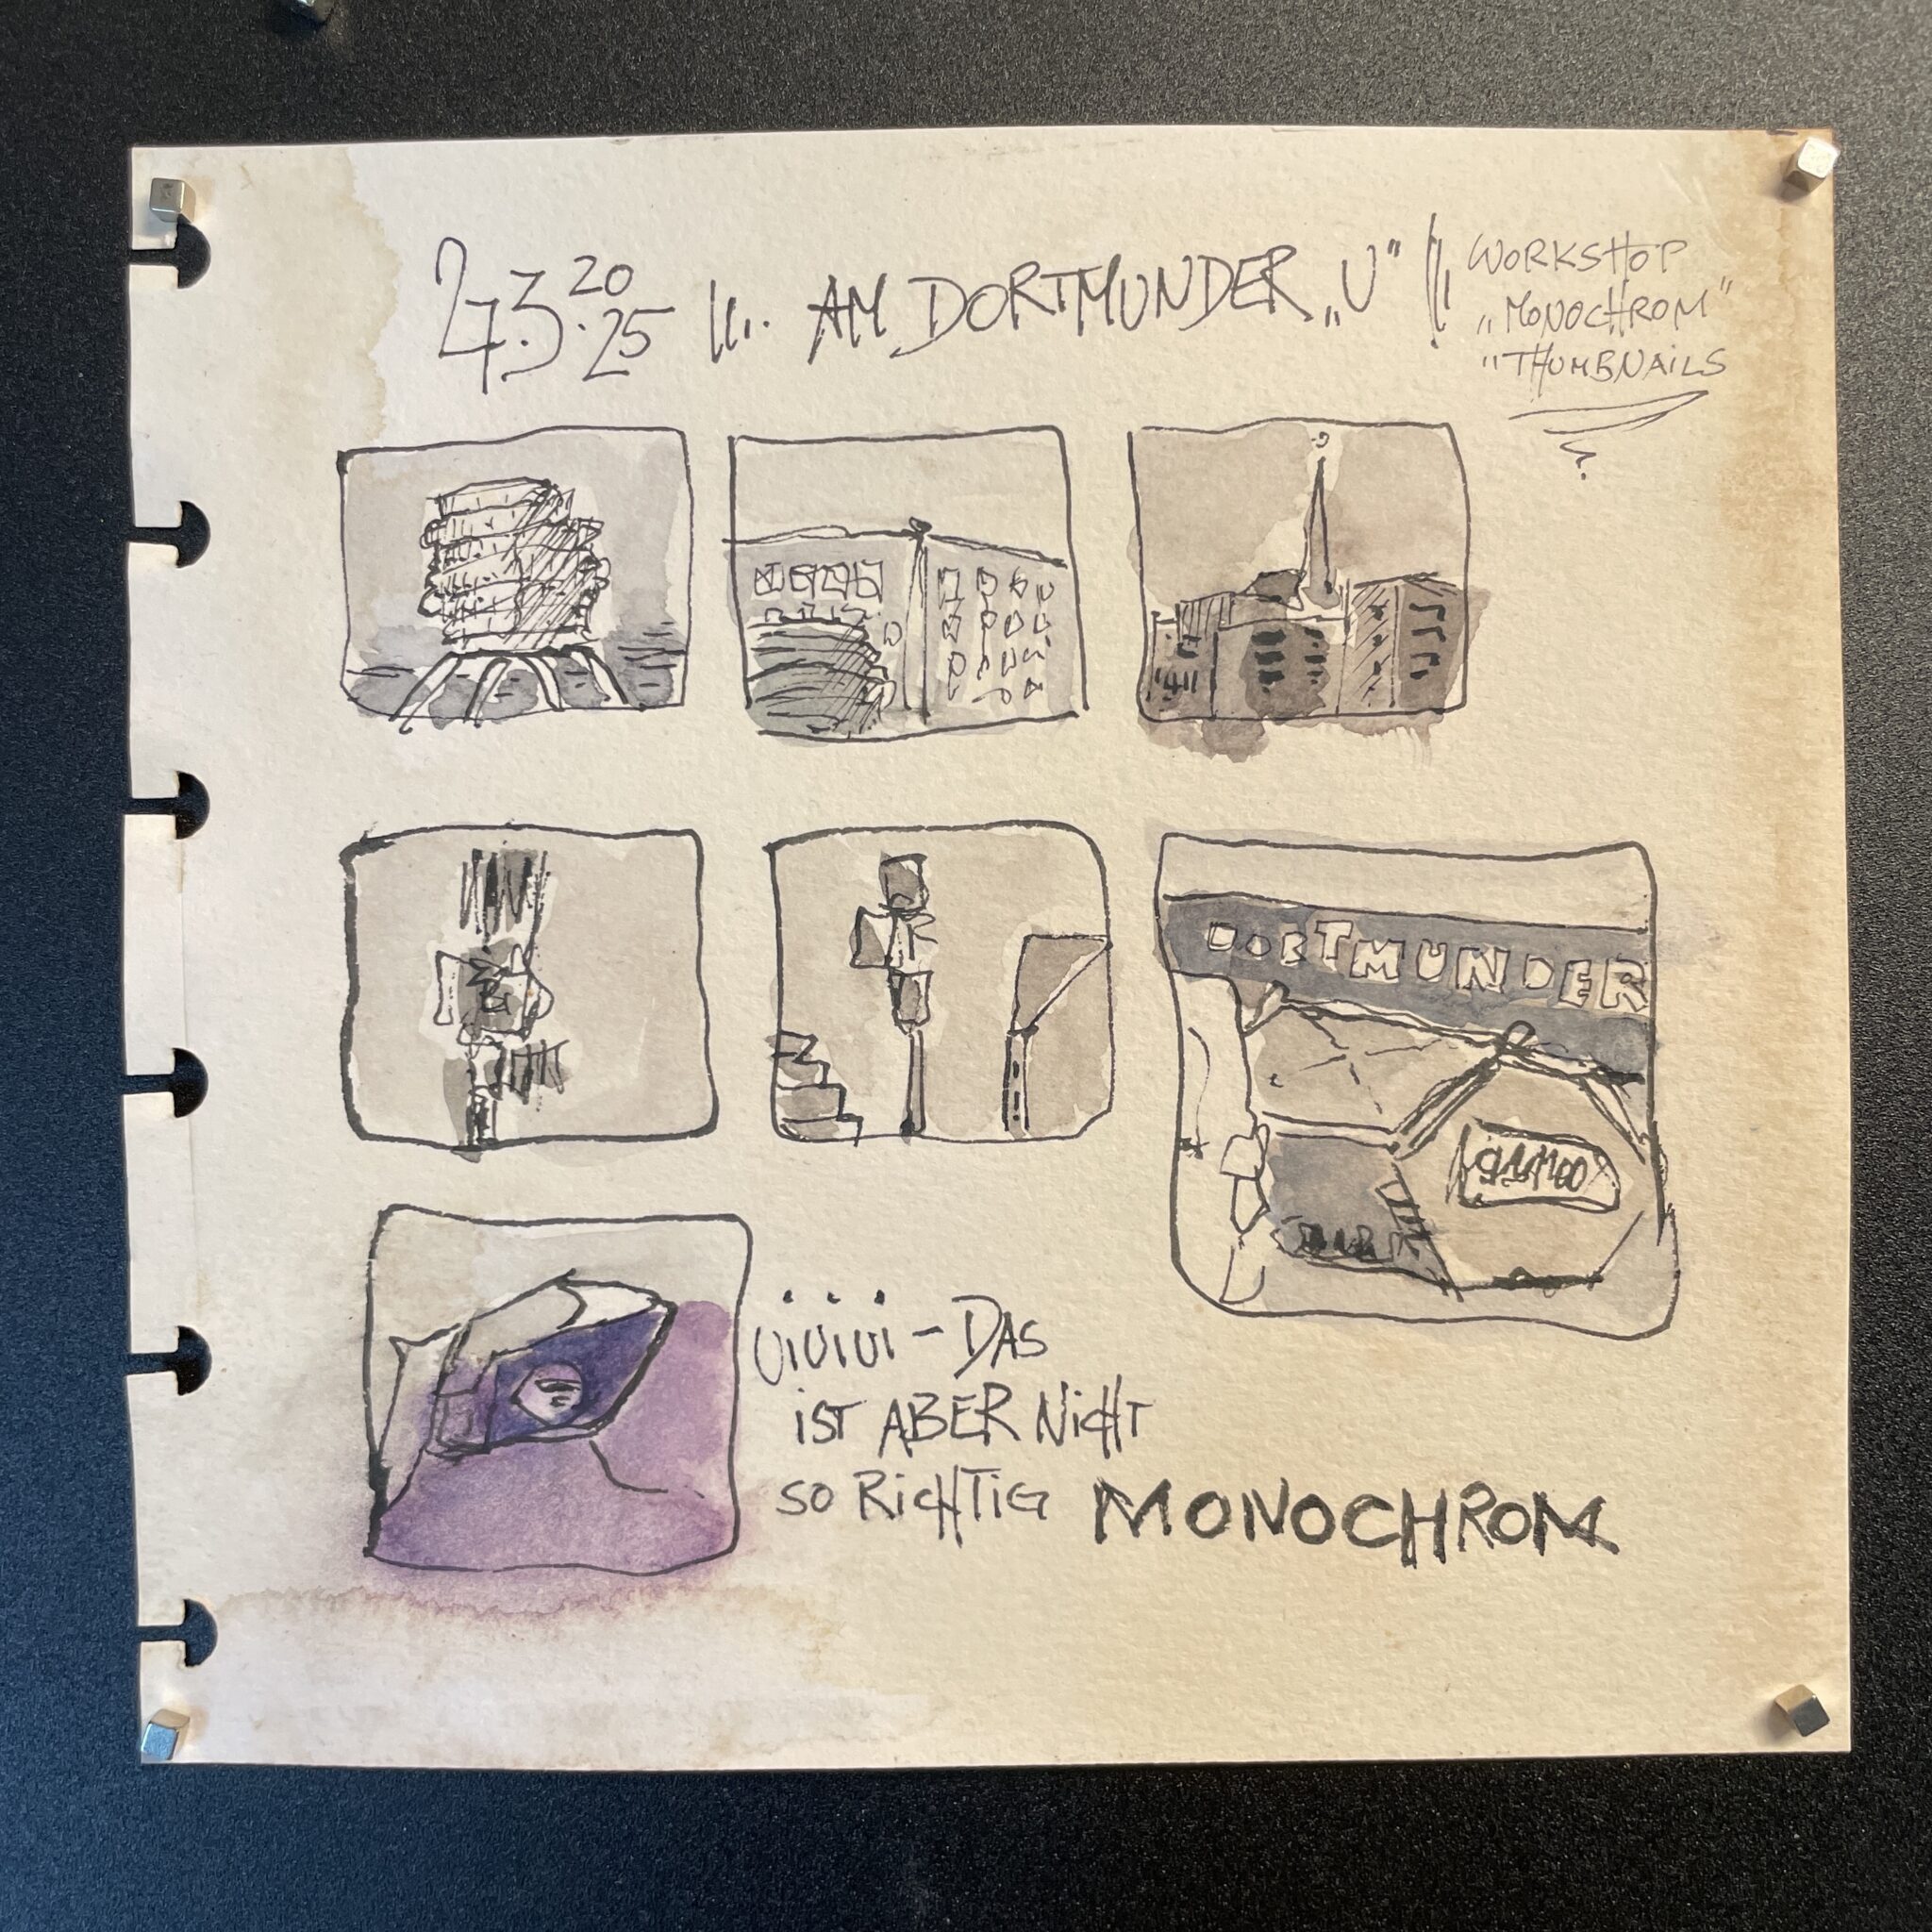 27.3.2025 AM DORTMUNDER „U"
WORKSHOP
„MONOCHROM"
"THUMBNAiLS
DORTMUNDER
UiUiUi – DAS
iST ABER NiCHT
SO RiCHTiG MONOCHROM